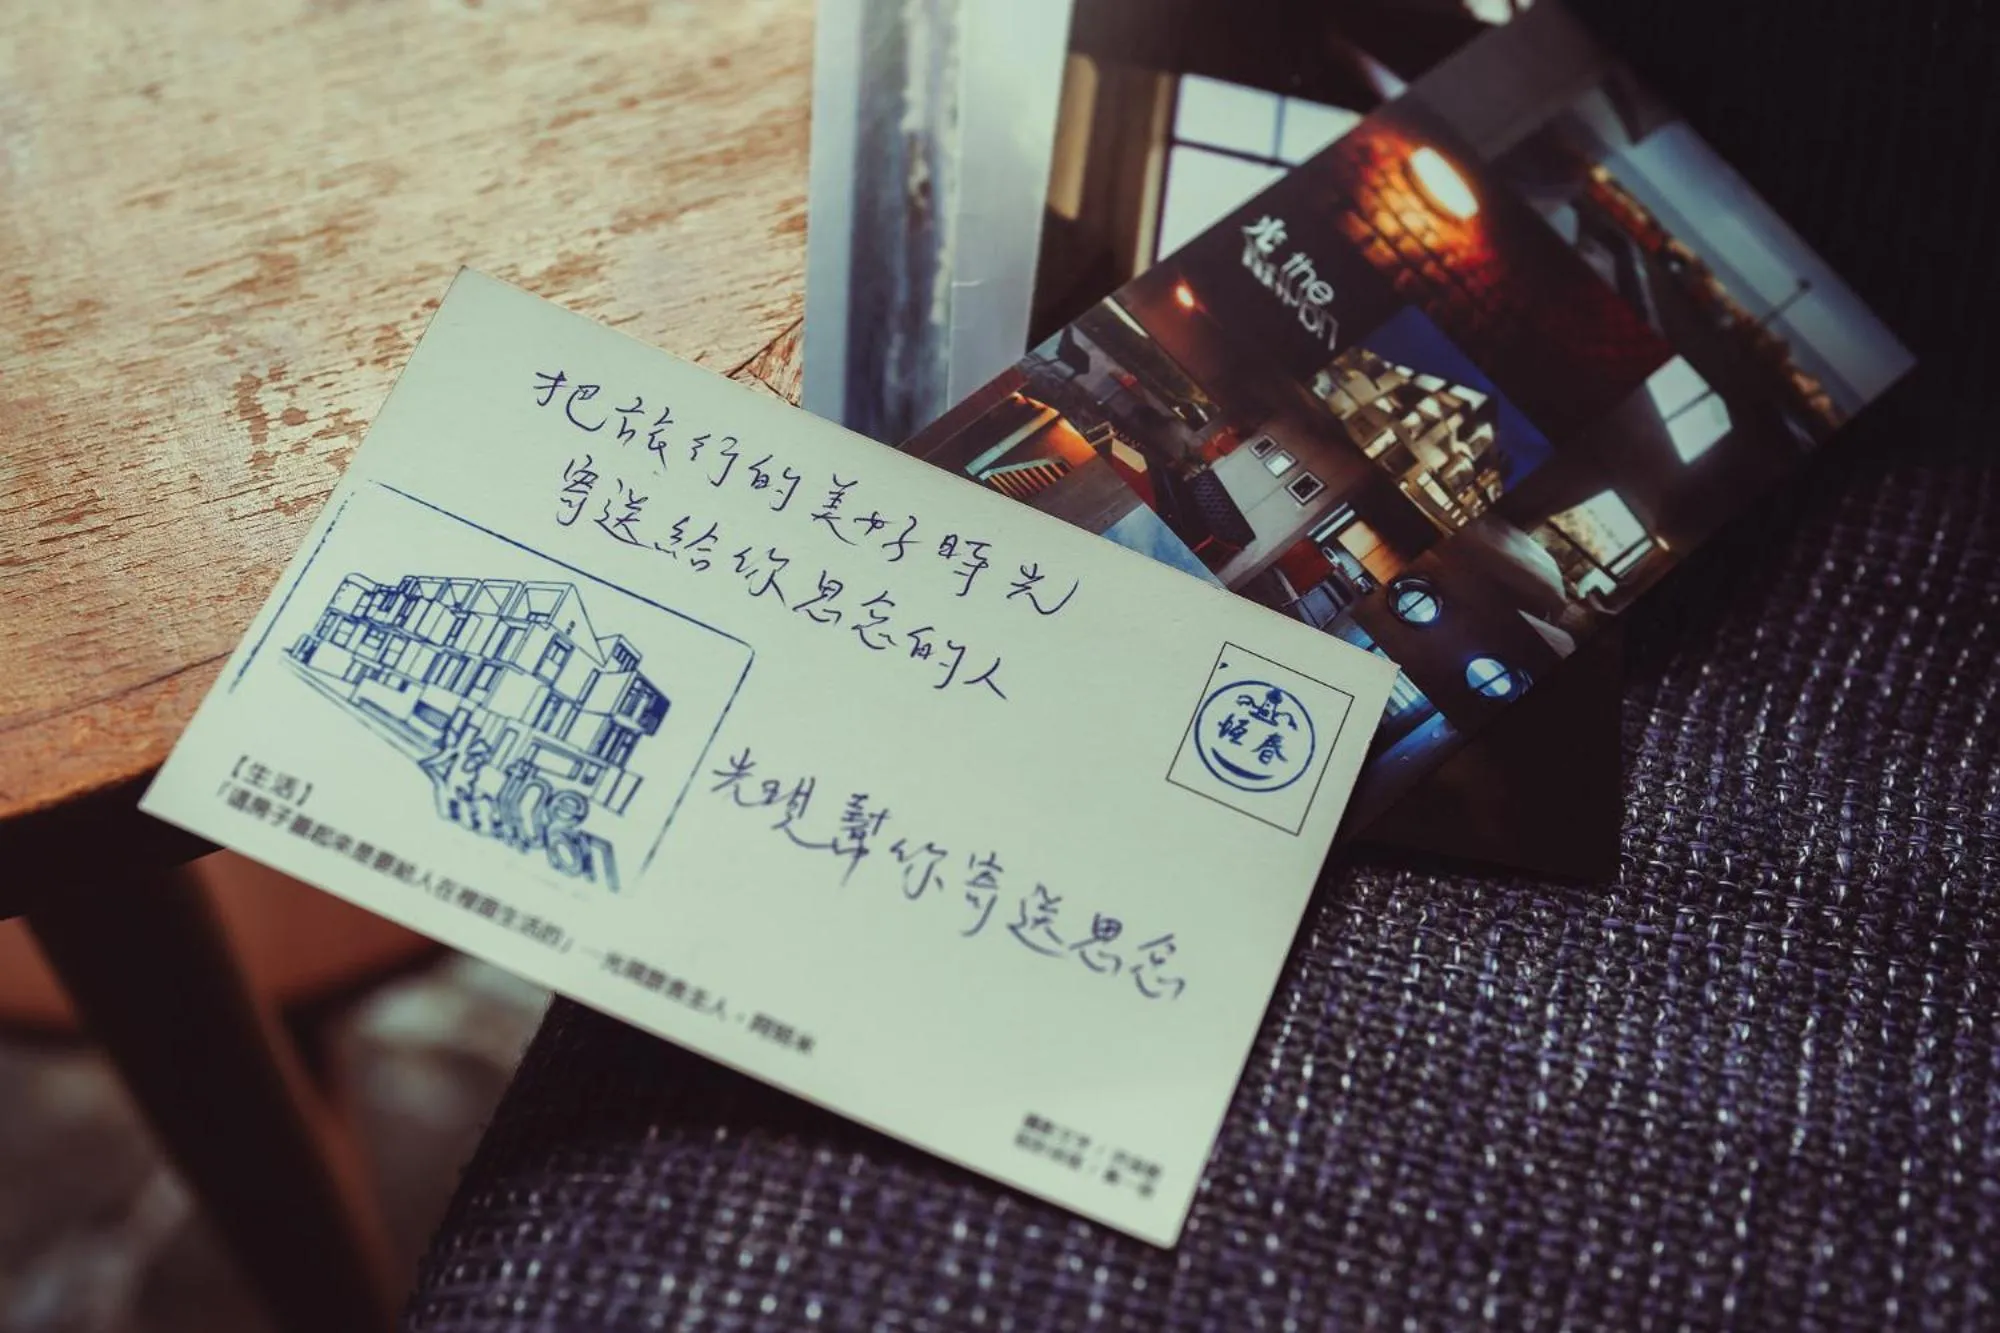 把旅行的美好時光
寄送給你思念的人
光現幫你寄送思念
恆春
光 the
【生活】
「這房子蓋起來是要給人在裡面生活的」
光 the